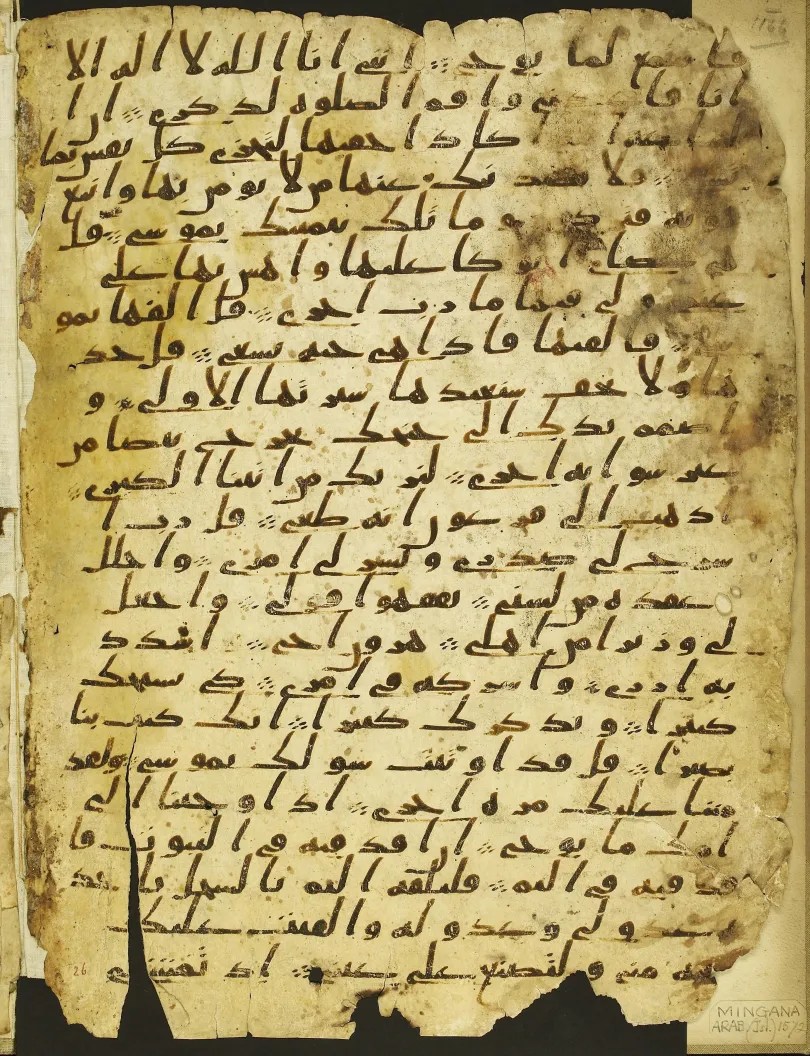 فاستمع لما يوحى انني انا الله لا اله الا
انا فاعبدني واقم الصلوه لذكري ان ا
اكاد اخفيها لتجزى كل نفس بما
فلا يصدنك عنها من لا يومن بها واتبع
هويه فتردى وما تلك بيمينك يموسى قل
هي عصاي اتوكا عليها واهش بها على
غنمي ولي فيها مارب اخرى قل القها يمو
سى فالقيها فاذا هي حيه تسعى قل خذ
ها ولا تخف سنعيدها سيرتها الاولى و
اضمم يدك الى جنحك تخرج بيضا من
غير سو ايه اخرى لنريك من ايتنا الكبرى
اذهب الى فرعون انه طغى قل رب ا
شرح لي صدري ويسر لي امري واحلل
عقده من لسني يفقهوا قولي واجعل
لي وزيرا من اهلي هرون اخي اشدد
به ازري واشركه في امري كي نسبحك
كثيرا ونذكرك كثيرا انك كنت بنا
بصيرا قل قد اوتيت سولك يموسى ولقد
مننا عليك مره اخرى اذ اوحينا الى
امك ما يوحى ان اقذفيه في التبوت فا
قذفيه في اليم فليلقه اليم بالسحل ياخذ
ه عدو لي وعدو له والقيت عليك
محبه مني ولتصنع على عيني اذ تمشي
26
MINGANA